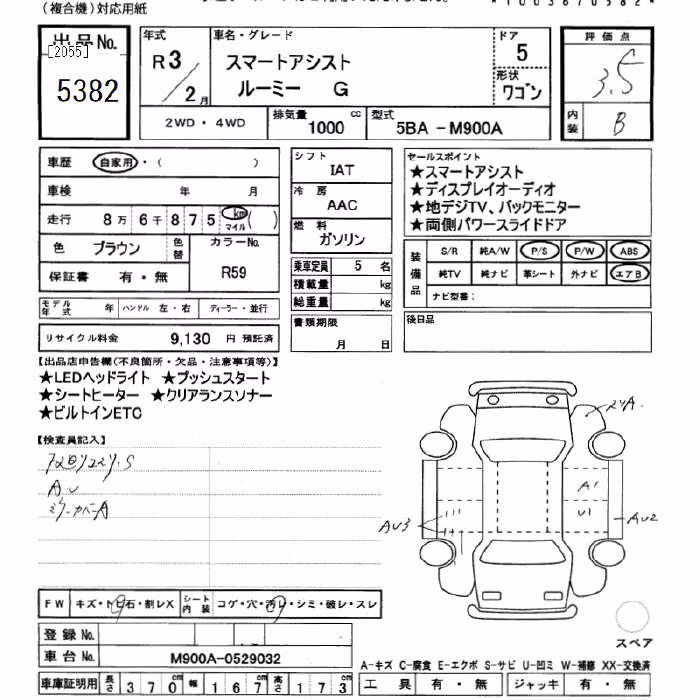 (複合機)対応用紙
出品No.
[2055]
5382
年式
R3/2月
車名・グレード
スマートアシスト
ルーミー G
ドア
5
形状
ワゴン
評価点
3.5
内装
B
2WD・4WD
排気量
1000 cc
型式
5BA-M900A
車歴 自家用・( )
車検 年 月
走行 8万6千875 km マイル ( )
色 ブラウン 色替
カラーNo.
R59
保証書 有・無
モデル年式 年 ハンドル 左・右 ディーラー・並行
リサイクル料金 9,130 円 預託済
シフト
IAT
冷房
AAC
燃料
ガソリン
乗車定員 5 名
積載量 kg
総重量 kg
書類期限
月 日
セールスポイント
★スマートアシスト
★ディスプレイオーディオ
★地デジTV、バックモニター
★両側パワースライドドア
装備品
S/R 純A/W P/S P/W ABS
純TV 純ナビ 革シート 外ナビ エアB
ナビ型番:
後日品
【出品店申告欄(不良箇所・欠品・注意事項等)】
★LEDヘッドライト ★プッシュスタート
★シートヒーター ★クリアランスソナー
★ビルトインETC
【検査員記入】
AU
ミラーカバーA
A1
U1
AU3
AU2
FW キズ・トビ石・割レX シート内装 コゲ・穴・汚レ・シミ・破レ・スレ
登録No.
車台No. M900A-0529032
車庫証明用 長さ 370cm 幅 167cm 高さ 173cm
スペア
A-キズ C-腐食 E-エクボ S-サビ U-凹ミ W-補修 XX-交換済
工具 有・無 ジャッキ 有・無